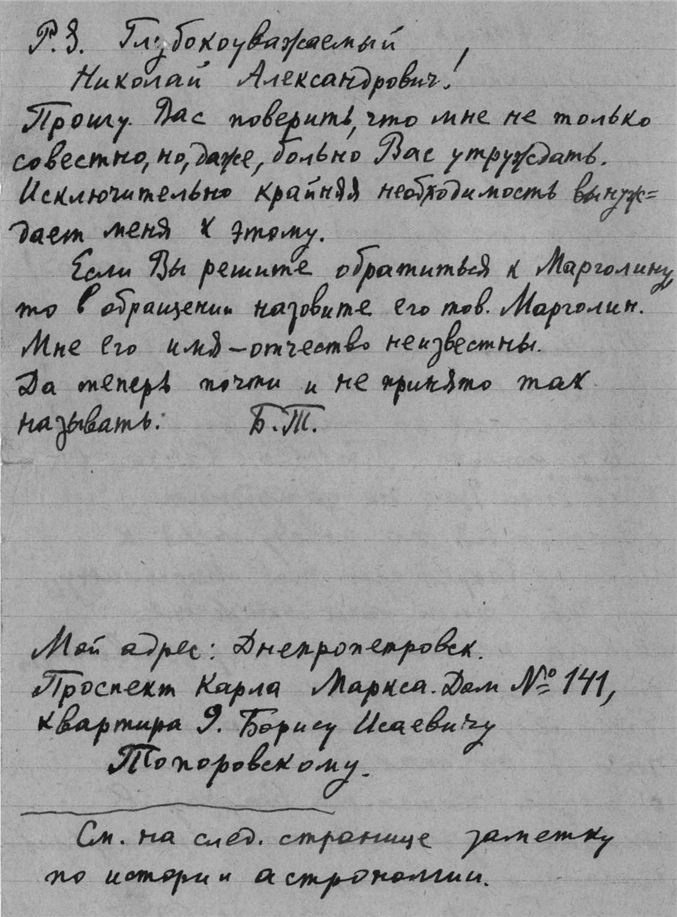 P.S. Глубокоуважаемый
Николай Александрович!
Прошу Вас поверить, что мне не только
совестно, но, даже, больно Вас утруждать.
Исключительно крайняя необходимость вынуж=
дает меня к этому.
Если Вы решите обратиться к Марголину,
то в обращении назовите его тов. Марголин.
Мне его имя-отчество неизвестны.
Да теперь почти и не принято так
называть. Б.Т.
Мой адрес: Днепропетровск.
Проспект Карла Маркса. Дом № 141,
квартира 9. Борису Исаевичу
Топоровскому.
См. на след. странице заметку
по истории астрономии.